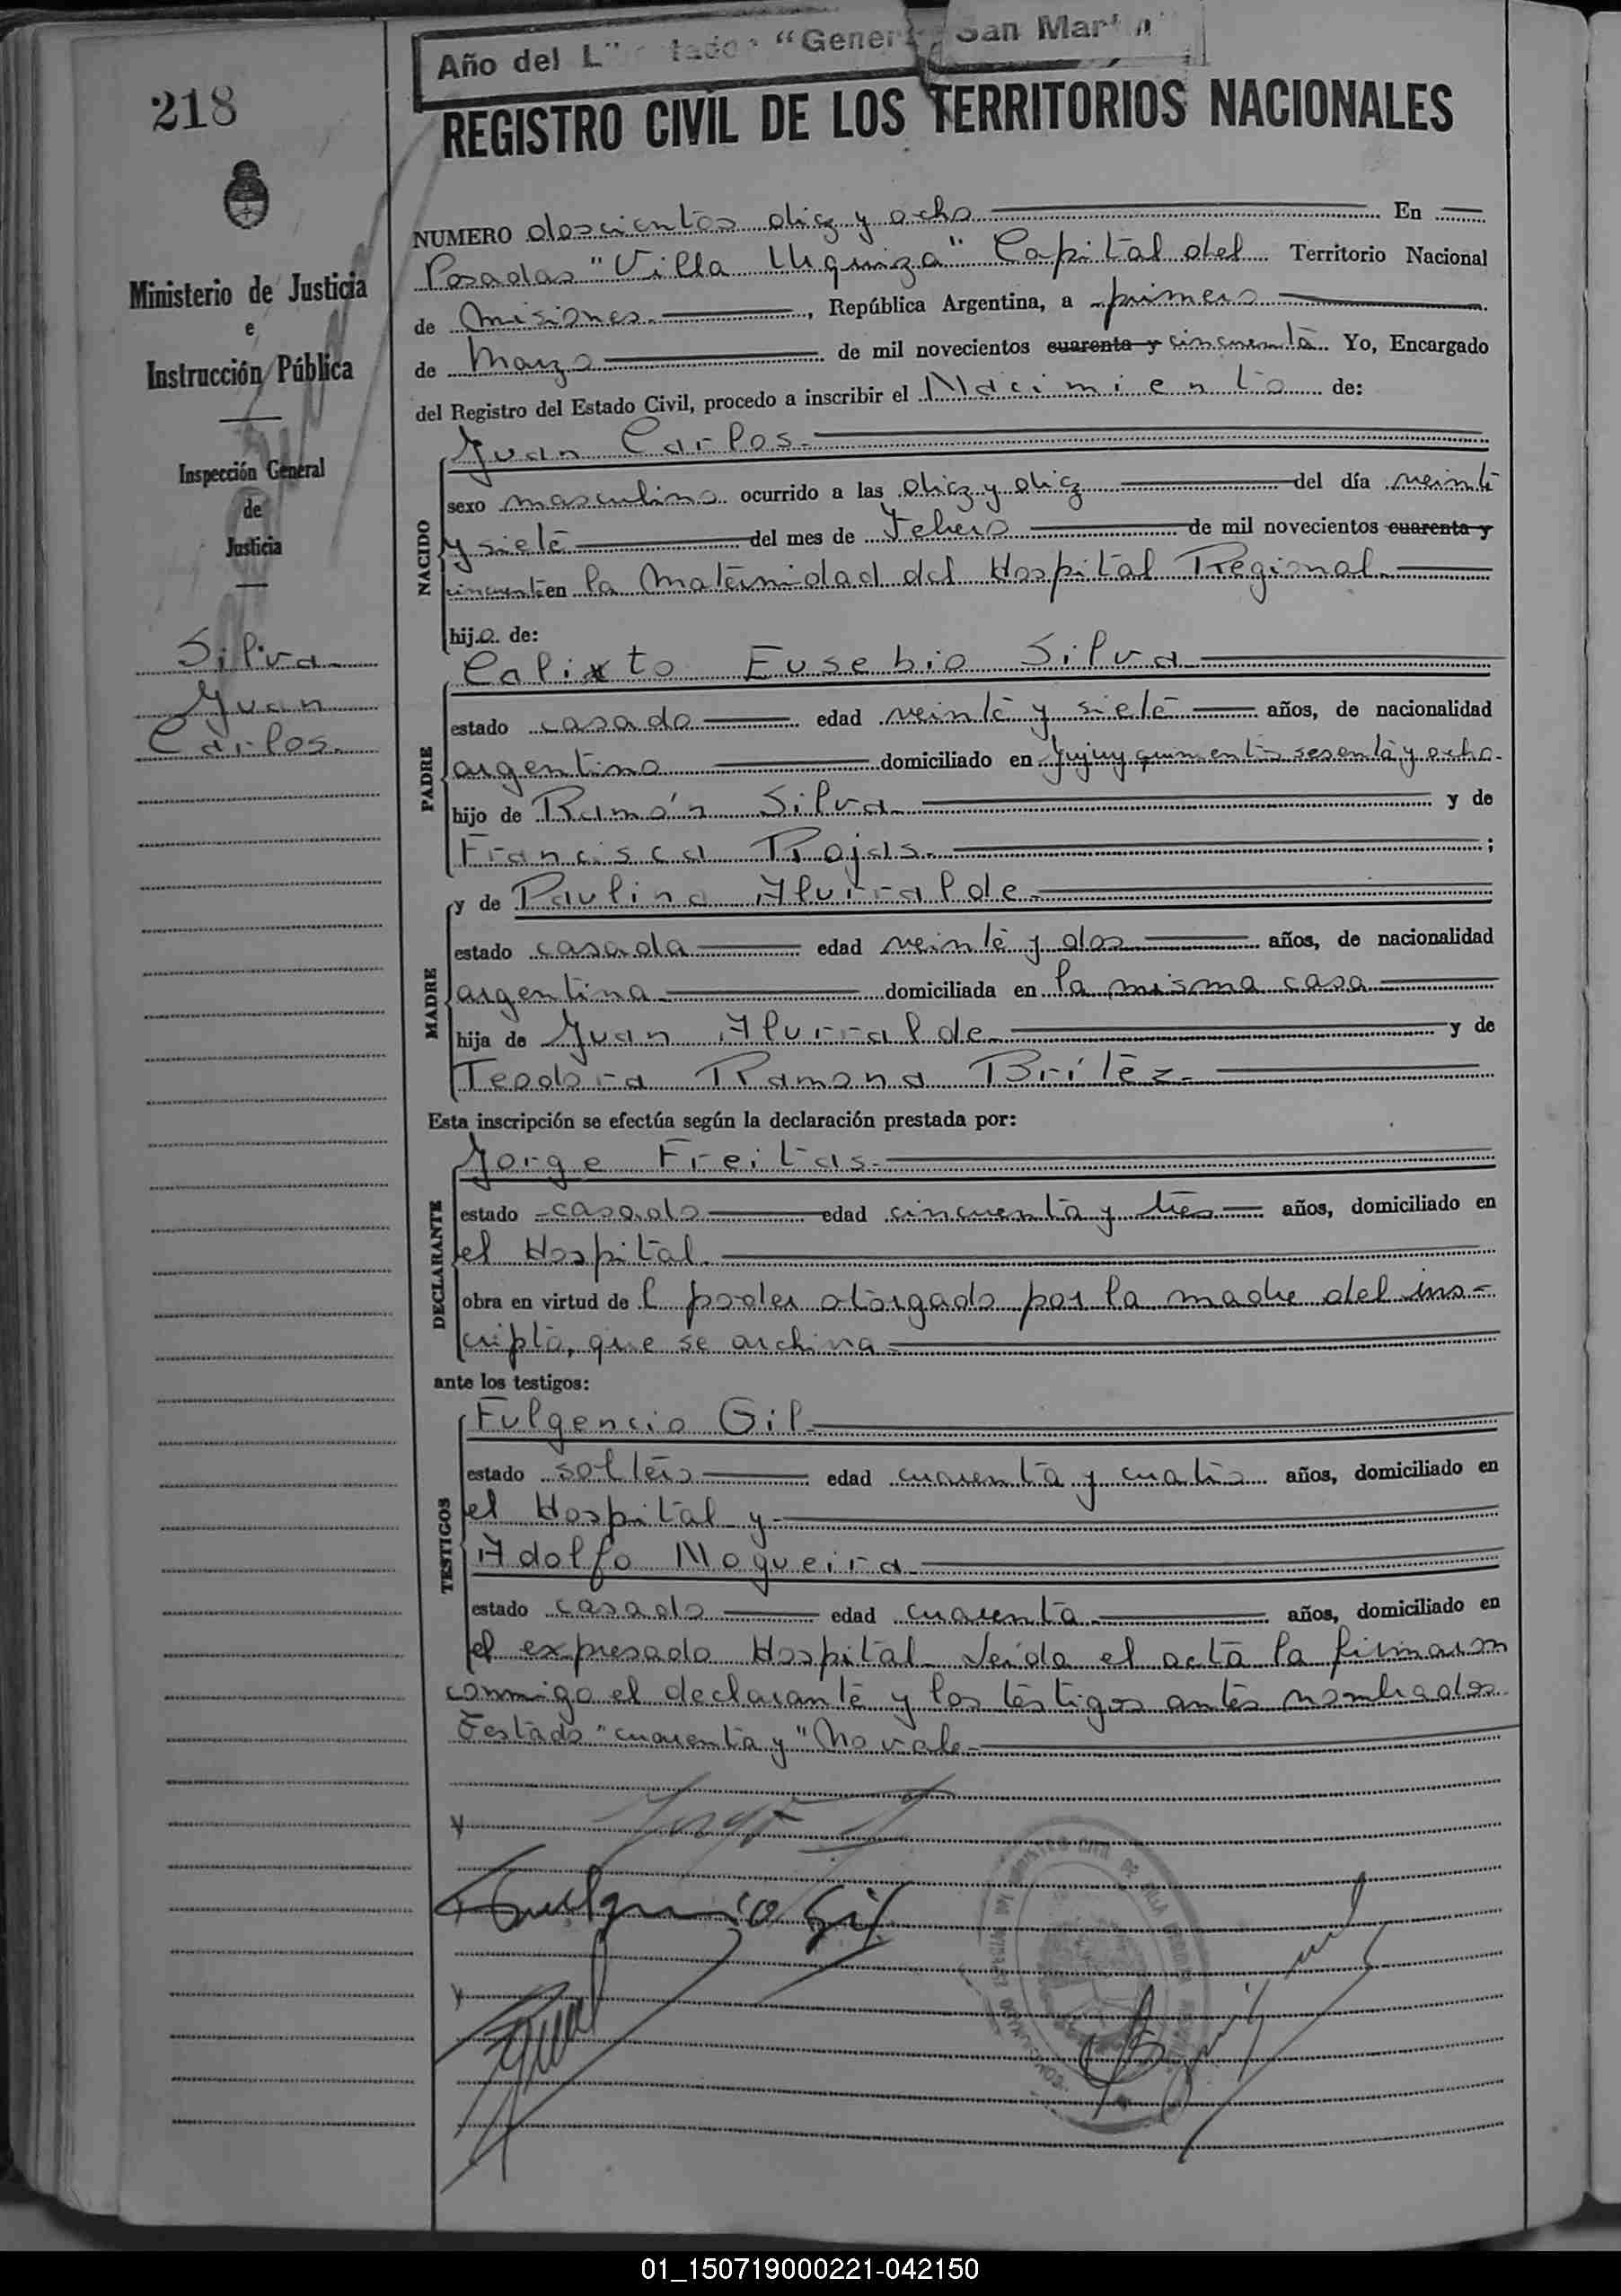 Año del Libertador "General San Martín"
218
REGISTRO CIVIL DE LOS TERRITORIOS NACIONALES
Ministerio de Justicia
e
Instrucción Pública
Inspección General
de
Justicia
Silva
Juan
Carlos.
NUMERO doscientos diez y ocho En
Posadas "Villa Urquiza" Capital del Territorio Nacional
de Misiones, República Argentina, a primero
de Marzo de mil novecientos cuarenta y cincuenta. Yo, Encargado
del Registro del Estado Civil, procedo a inscribir el Nacimiento de:
NACIDO
Juan Carlos.
sexo masculino ocurrido a las diez y diez del día veinte
y siete del mes de Febrero de mil novecientos cuarenta y
cincuenta en la Maternidad del Hospital Regional.
hijo de:
PADRE
Calixto Eusebio Silva
estado casado edad veinte y siete años, de nacionalidad
argentino domiciliado en Jujuy quinientos sesenta y ocho.
hijo de Ramón Silva y de
Francisca Rojas. ;
MADRE
y de Paulina Alurralde
estado casada edad veinte y dos años, de nacionalidad
argentina domiciliada en la misma casa
hija de Juan Alurralde y de
Teodora Ramona Britez.
Esta inscripción se efectúa según la declaración prestada por:
DECLARANTE
Jorge Freitas.
estado casado edad cincuenta y tres años, domiciliado en
el Hospital.
obra en virtud del poder otorgado por la madre del ins-
cripto, que se archiva
ante los testigos:
TESTIGOS
Fulgencio Gil
estado soltero edad cuarenta y cuatro años, domiciliado en
el Hospital y
Adolfo Nogueira
estado casado edad cuarenta años, domiciliado en
el expresado Hospital. Leída el acta la firmaron
conmigo el declarante y los testigos antes nombrados.
Testado "cuarenta y" No vale
Fulgencio Gil
01_150719000221-042150